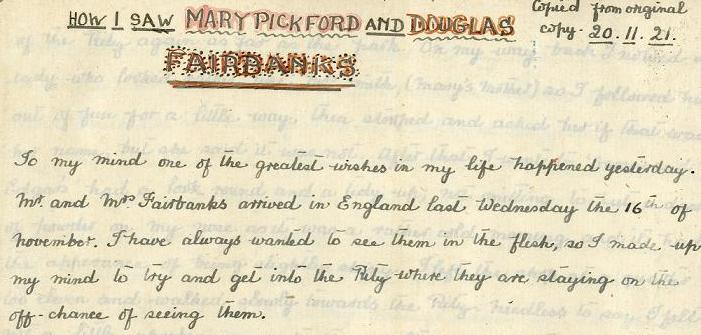 HOW I SAW MARY PICKFORD AND DOUGLAS
FAIRBANKS
Copied from original
copy. 20.11.21.
To my mind one of the greatest wishes in my life happened yesterday.
Mr. and Mrs Fairbanks arrived in England last Wednesday the 16th of
november. I have always wanted to see them in the flesh, so I made up
my mind to try and get into the Ritz where they are staying on the
off-chance of seeing them.